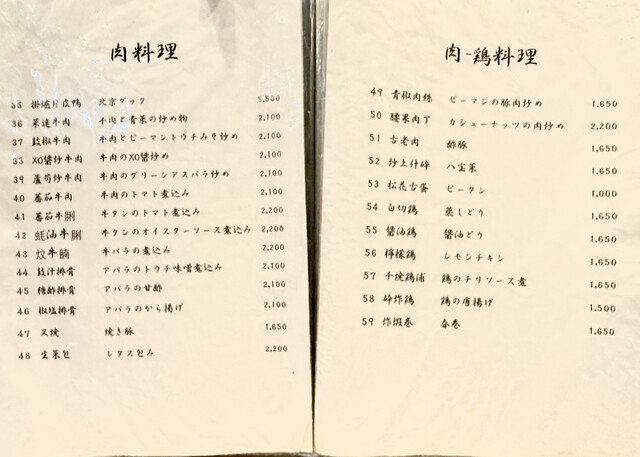 肉料理
35 掛爐片皮鴨 北京ダック 5,500
36 菜遠牛肉 牛肉と青菜の炒め物 2,100
37 豉椒牛肉 牛肉とピーマントウチみそ炒め 2,100
33 XO醬炒牛肉 牛肉のXO醬炒め 2,100
39 蘆筍炒牛肉 牛肉のグリーンアスパラ炒め 2,100
40 蕃茄牛肉 牛肉のトマト煮込み 2,100
41 蕃茄牛脷 牛タンのトマト煮込み 2,200
42 蚝油牛脷 牛タンのオイスターソース煮込み 2,200
43 炆牛腩 牛バラの煮込み 2,200
44 豉汁排骨 アバラのトウチ味噌煮込み 2,100
45 糖酢排骨 アバラの甘酢 2,100
46 椒塩排骨 アバラのから揚げ 2,100
47 叉焼 焼き豚 1,650
48 生菜包 レタス包み 2,200
肉-鶏料理
49 青椒肉絲 ピーマンの豚肉炒め 1,650
50 腰果肉丁 カシューナッツの肉炒め 2,200
51 古老肉 酢豚 1,650
52 炒上什碎 八宝菜 1,650
53 松花古蛋 ピータン 1,000
54 白切鶏 蒸しどり 1,650
55 醬油鶏 醬油どり 1,650
56 檸檬鶏 レモンチキン 1,650
57 干焼鶏浦 鶏のチリソース煮 1,650
58 砕炸鶏 鶏の唐揚げ 1,500
59 炸蝦巻 春巻 1,650